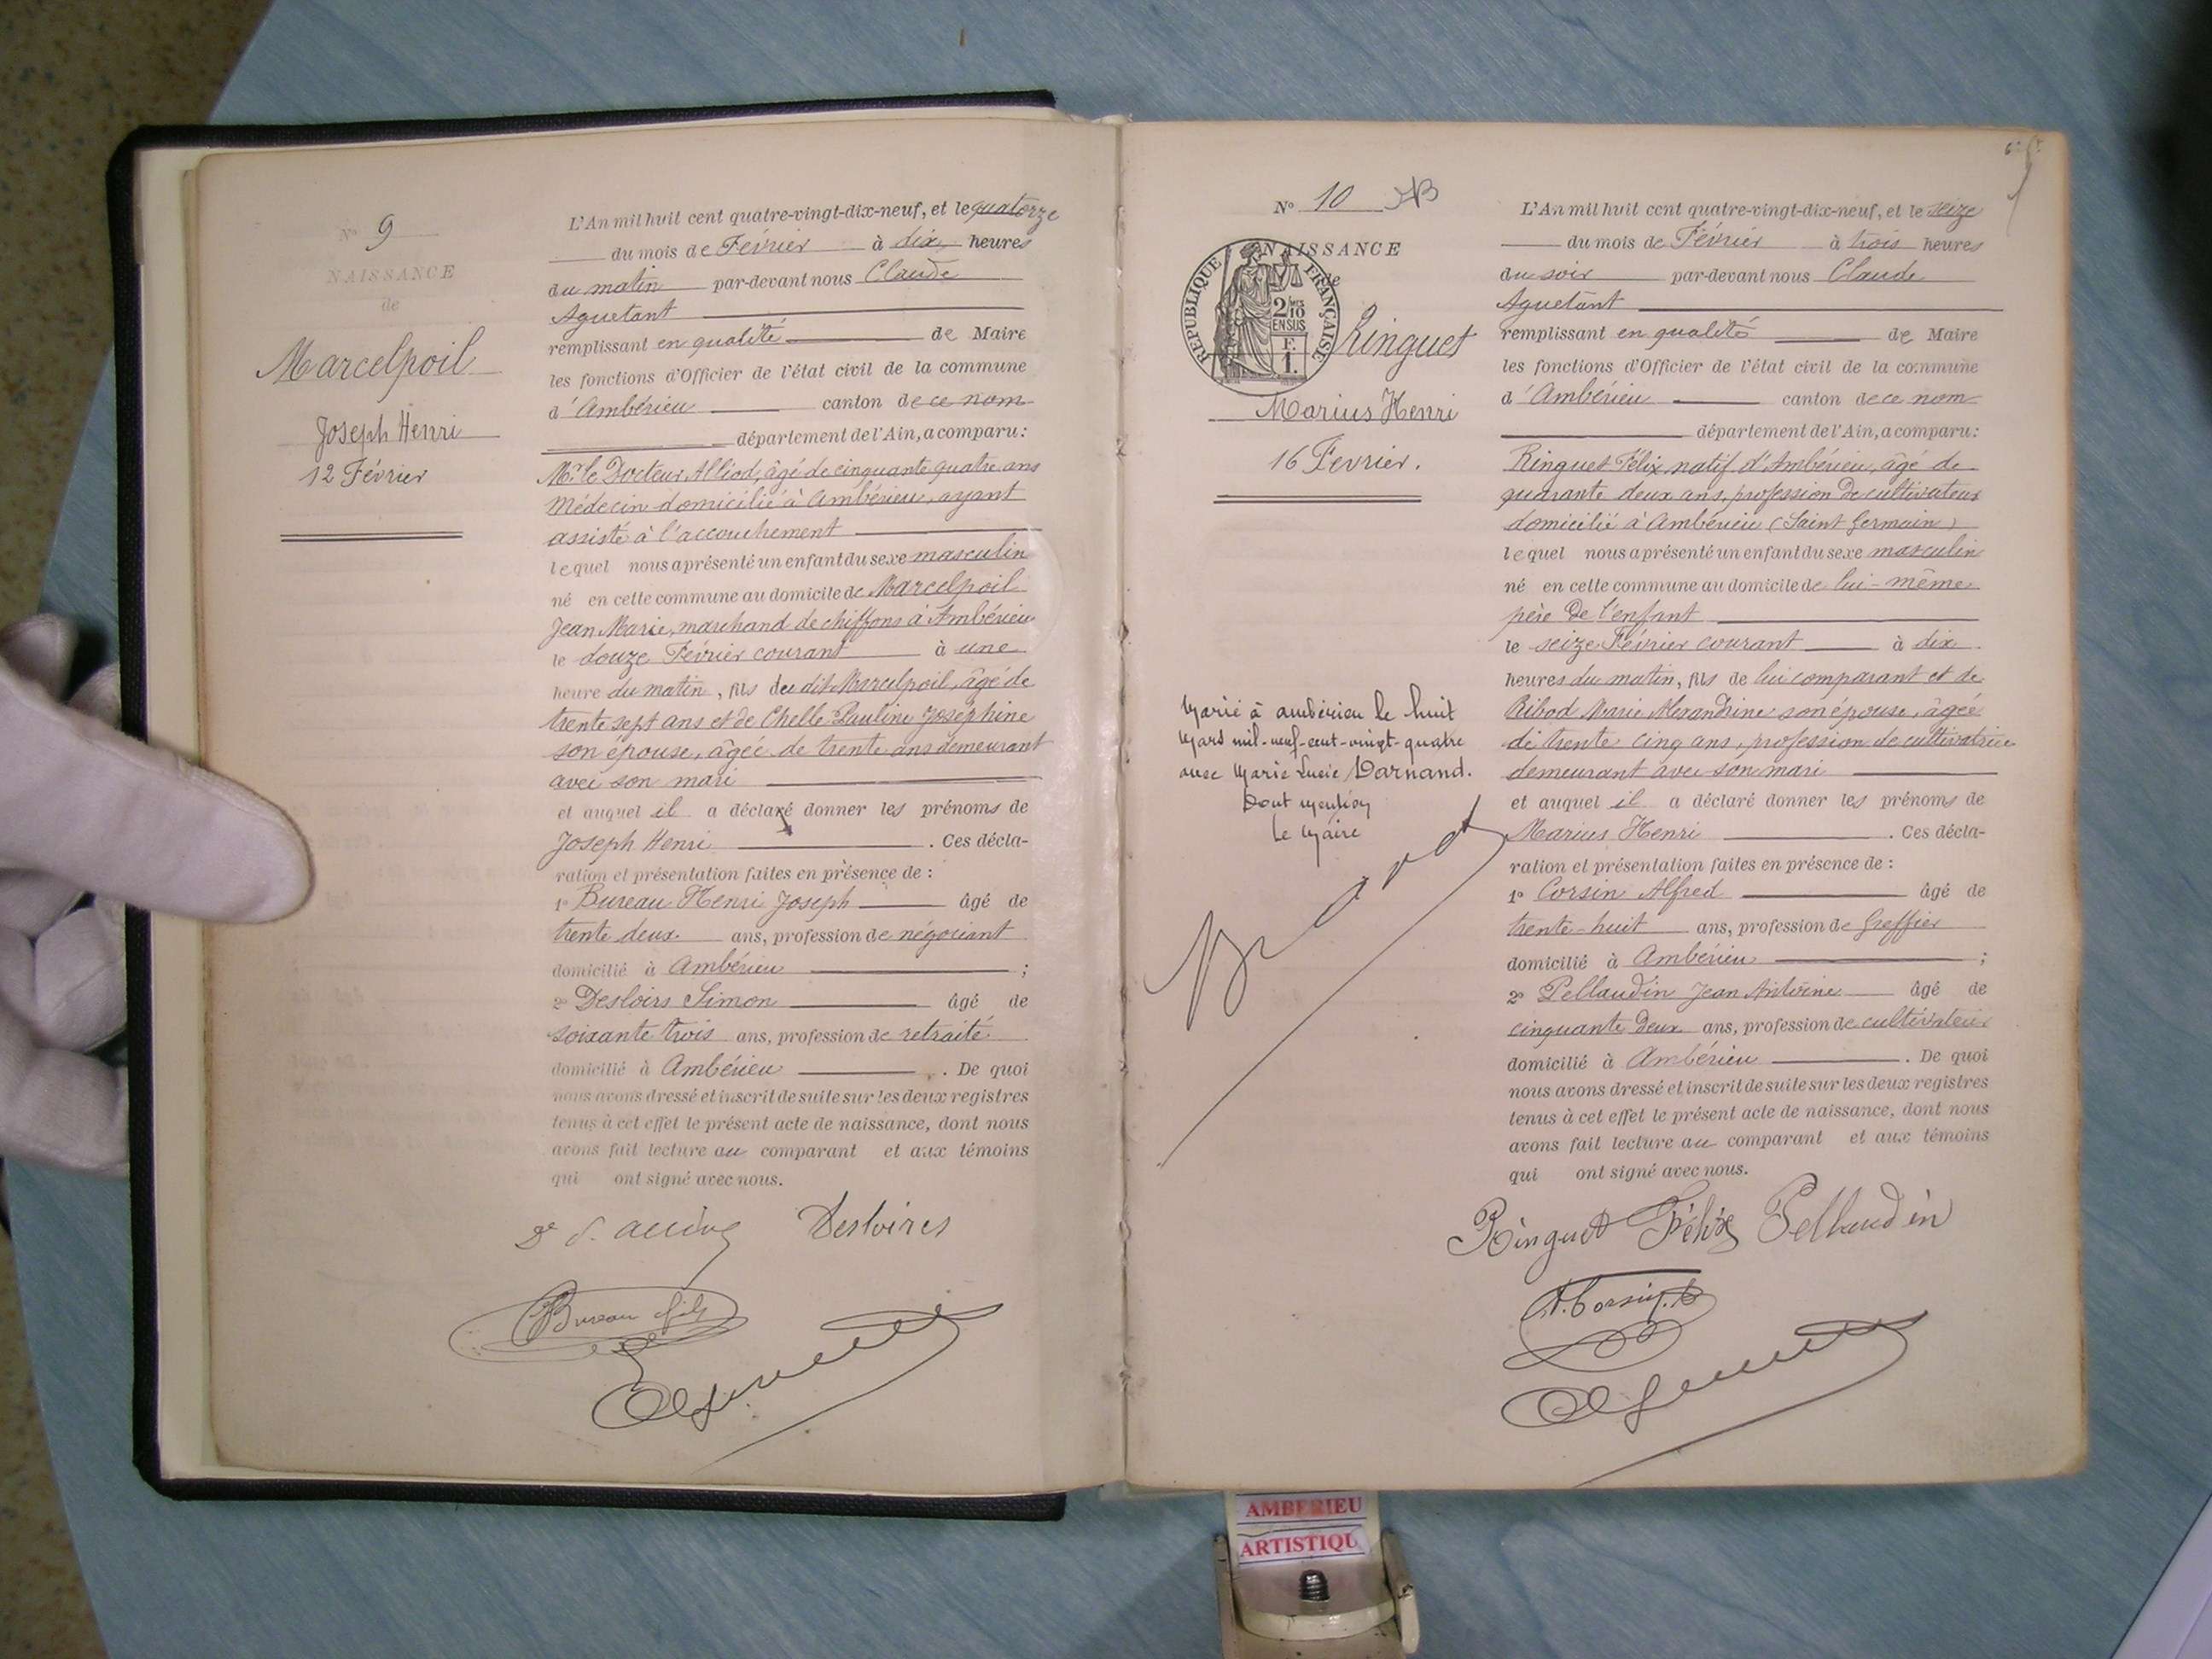 N° 9
NAISSANCE
de
Marcelpoil
Joseph Henri
12 Février
L'An mil huit cent quatre-vingt-dix-neuf, et le quatorze
du mois de Février à dix heures
du matin par-devant nous Claude
Aguetant
remplissant en qualité de Maire
les fonctions d'Officier de l'état civil de la commune
d'Ambérieu canton de ce nom
département de l'Ain, a comparu:
Mr. le Docteur Alliod, âgé de cinquante quatre ans
Médecin domicilié à Ambérieu, ayant
assisté à l'accouchement
lequel nous a présenté un enfant du sexe masculin
né en cette commune au domicile de Marcelpoil
Jean Marie, marchand de chiffons à Ambérieu
le douze Février courant à une
heure du matin, fils du dit Marcelpoil, âgé de
trente sept ans et de Chelle Pauline Joséphine
son épouse, âgée de trente ans demeurant
avec son mari
et auquel il a déclaré donner les prénoms de
Joseph Henri . Ces décla-
ration et présentation faites en présence de :
1° Bureau Henri Joseph âgé de
trente deux ans, profession de négociant
domicilié à Ambérieu ;
2° Desloirs Simon âgé de
soixante trois ans, profession de retraité
domicilié à Ambérieu . De quoi
nous avons dressé et inscrit de suite sur les deux registres
tenus à cet effet le présent acte de naissance, dont nous
avons fait lecture au comparant et aux témoins
qui ont signé avec nous.
Desloires
Bureau fils
N° 10
NAISSANCE
de
RÉPUBLIQUE FRANÇAISE
2/10
EN SUS
F.
1.
Ringuet
Marius Henri
16 Fevrier.
Marié à Ambérieu le huit
Mars mil-neuf-cent-vingt-quatre
avec Marie Lucie Darnand.
Dont mention
Le Maire
L'An mil huit cent quatre-vingt-dix-neuf, et le seize
du mois de Février à trois heures
du soir par-devant nous Claude
Aguetant
remplissant en qualité de Maire
les fonctions d'Officier de l'état civil de la commune
d'Ambérieu canton de ce nom
département de l'Ain, a comparu:
Ringuet Félix natif d'Ambérieu, âgé de
quarante deux ans, profession de cultivateur
domicilié à Ambérieu (Saint Germain)
lequel nous a présenté un enfant du sexe masculin
né en cette commune au domicile de lui-même
père de l'enfant
le seize Février courant à dix
heures du matin, fils de lui comparant et de
Ribod Marie Alexandrine son épouse, âgée
de trente cinq ans, profession de cultivatrice
demeurant avec son mari
et auquel il a déclaré donner les prénoms de
Marius Henri . Ces décla-
ration et présentation faites en présence de :
1° Corsin Alfred âgé de
trente-huit ans, profession de Greffier
domicilié à Ambérieu ;
2° Pellaudin Jean Antoine âgé de
cinquante deux ans, profession de cultivateur
domicilié à Ambérieu . De quoi
nous avons dressé et inscrit de suite sur les deux registres
tenus à cet effet le présent acte de naissance, dont nous
avons fait lecture au comparant et aux témoins
qui ont signé avec nous.
Ringuet Félix Pellaudin
A. Corsin
AMBERIEU
ARTISTIQU